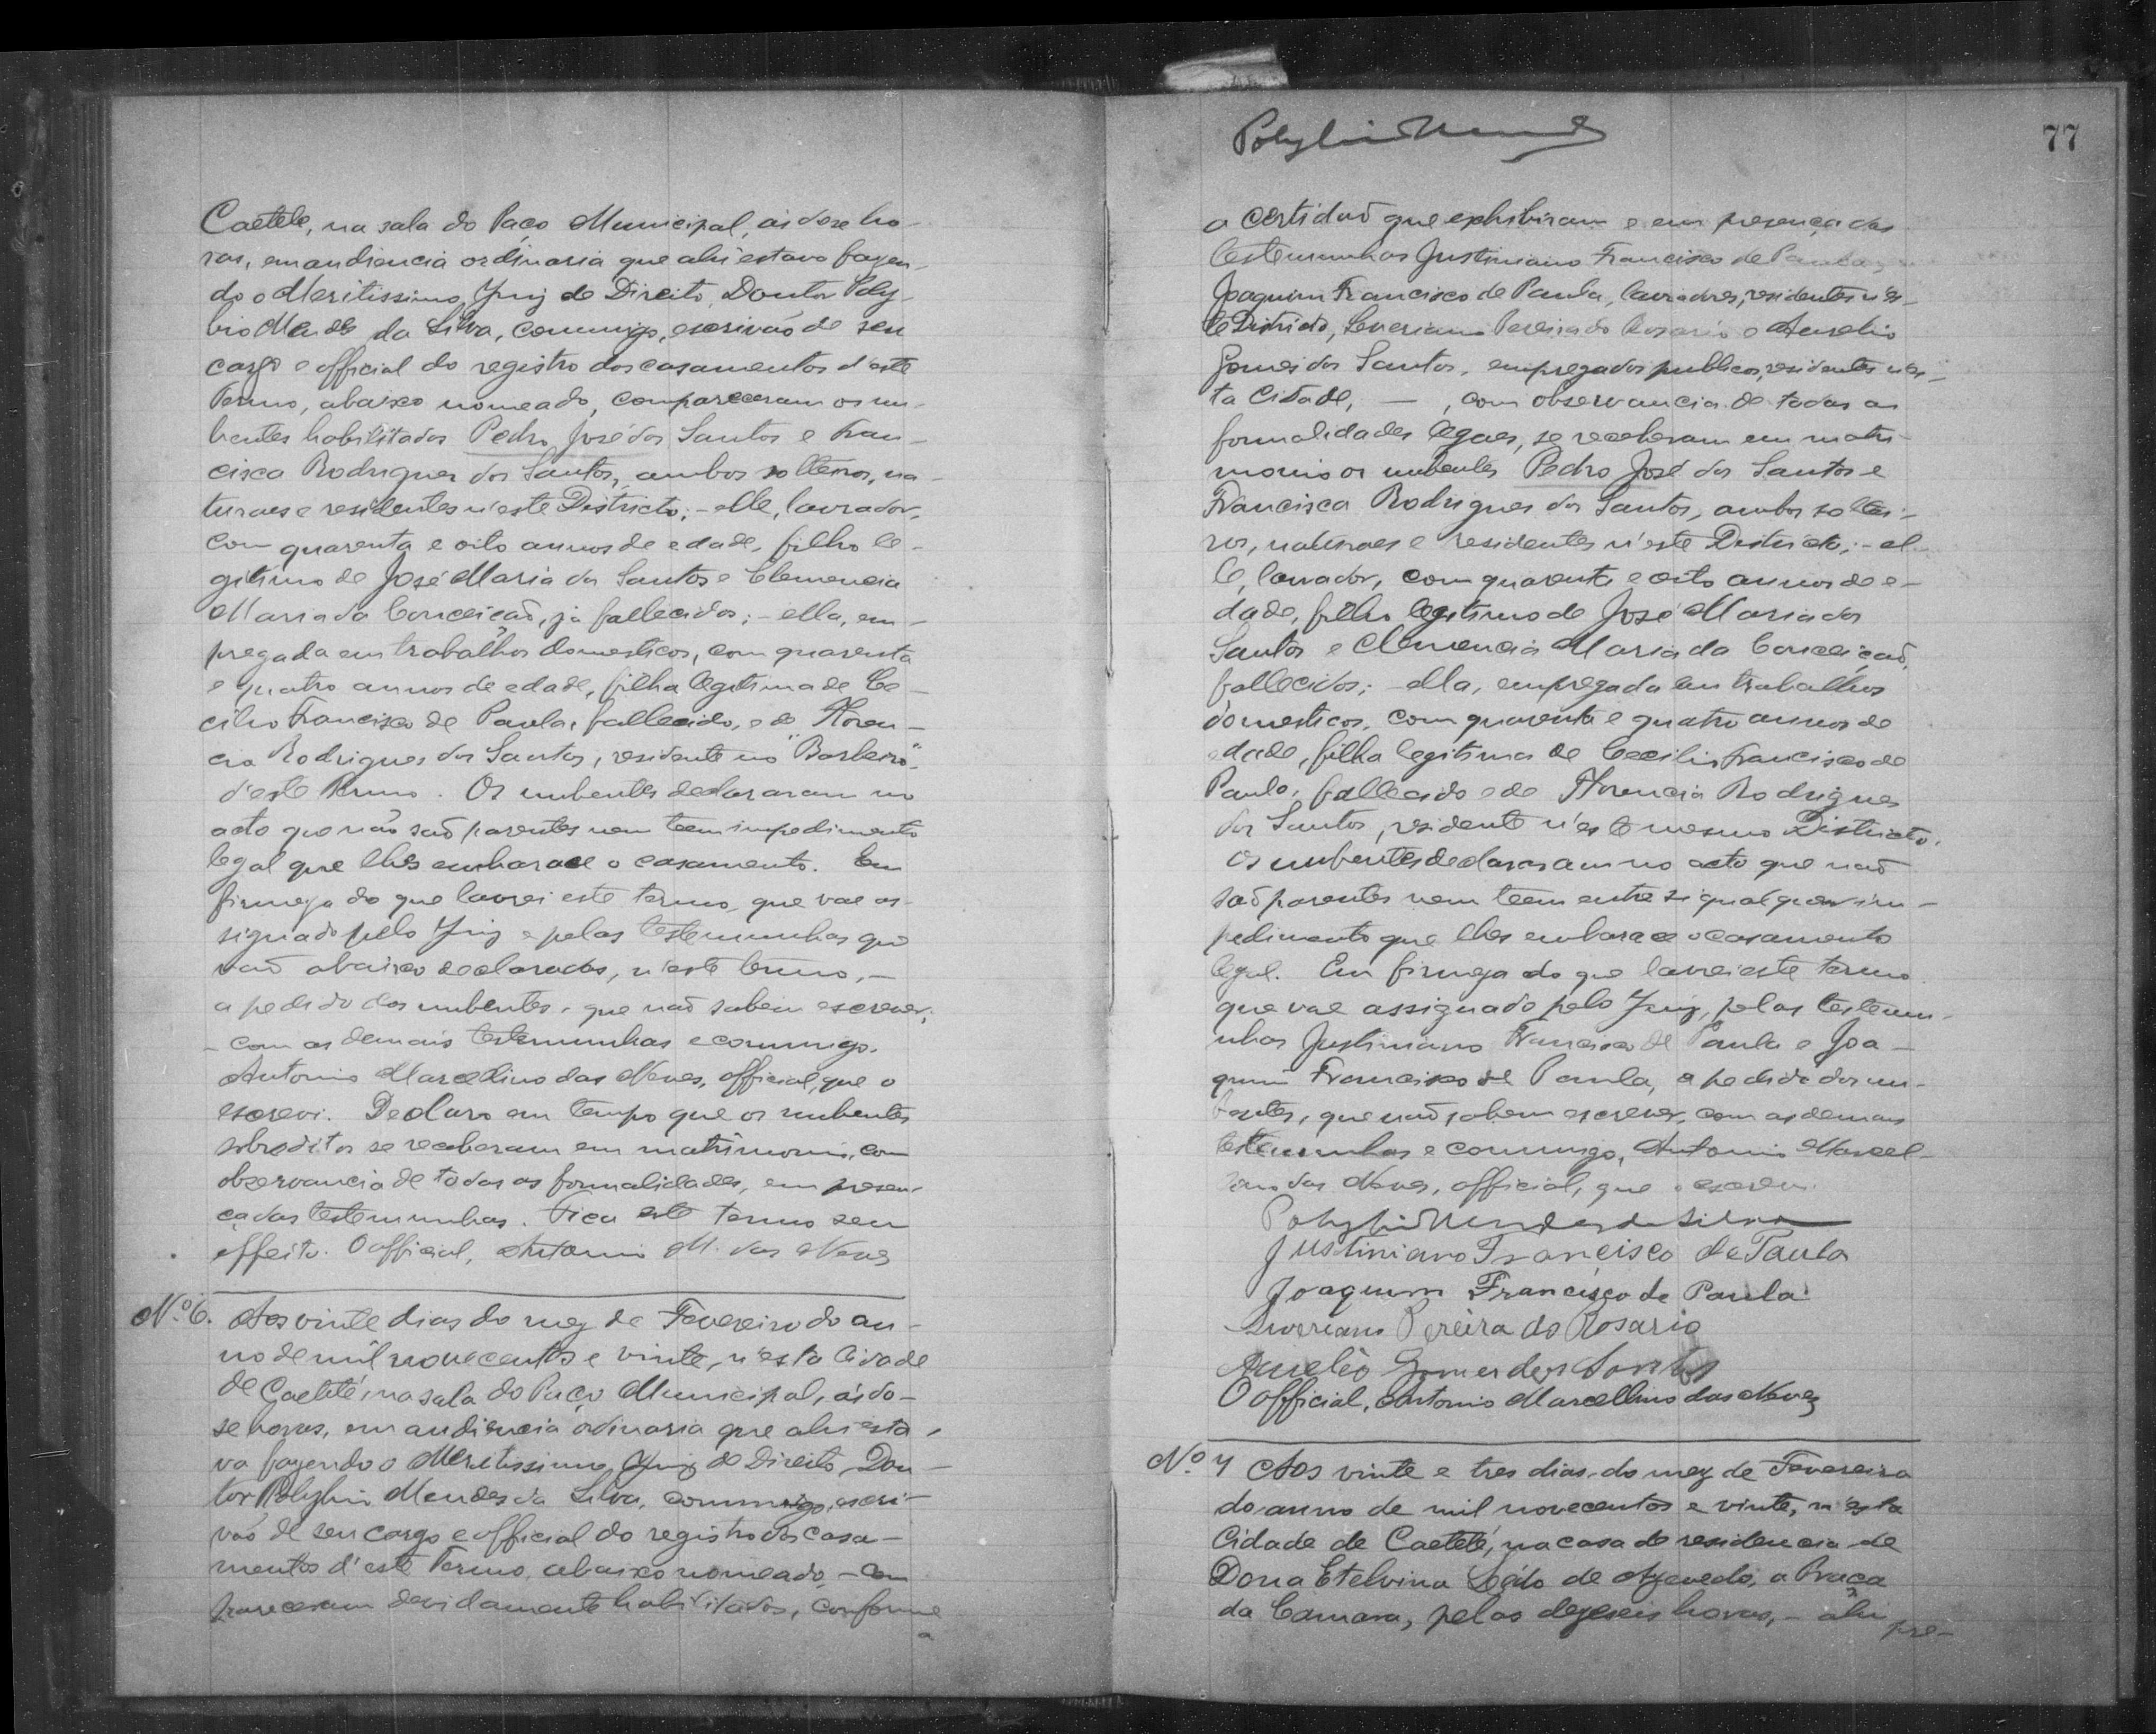 Caeteté, na sala do Paço Municipal, ás dose ho-
ras, em audiencia ordinaria que ahi estava fazen-
do o Meritissimo Juiz de Direito, Doutor Poly-
bio Mendes da Silva, commigo, escrivão de seu
cargo e official do registro dos casamentos d'este
Termo, abaixo nomeado, compareceram os nu-
bentes habilitados Pedro José dos Santos e Fran-
cisca Rodrigues dos Santos, ambos solteiros, na-
turaes e residentes n'este Districto; - elle, lavrador,
com quarenta e oito annos de edade, filho le-
gitimo de José Maria dos Santos e Clemencia
Maria da Conceição, já fallecidos; - ella, em-
pregada em trabalhos domesticos, com quarenta
e quatro annos de edade, filha legitima de Ce-
cilio Francisco de Paula, fallecido, e de Floren-
cia Rodrigues dos Santos, residente no "Barbeiro",
d'este Termo. Os nubentes declararam no
acto que não são parentes nem teem impedimento
legal que lhes embarace o casamento. Em
firmeza do que lavrei este termo, que vae as-
signado pelo Juiz e pelas testemunhas que
vão abaixo declaradas, n'este termo, -
a pedido dos nubentes, que não sabem escrever,
- com as demais testemunhas e commigo,
Antonio Marcellino das Neves, official, que o
escrevi. Declaro em tempo que os nubentes
sobreditos se receberam em matrimonio, com
observancia de todas as formalidades, em presen-
ça das testemunhas. Fica este termo sem
effeito. O official, Antonio M. das Neves
Nº. 6. Aos vinte dias do mez de Fevereiro do an-
no de mil novecentos e vinte, n'esta Cidade
de Caeteté, na sala do Paço Municipal, ás do-
se horas, em audiencia ordinaria que ahi esta-
va fazendo o Meritissimo Juiz de Direito, Dou-
tor Polybio Mendes da Silva, commigo, escri-
vão de seu cargo e official do registro dos casa-
mentos d'este Termo, abaixo nomeado, - com
pareceram devidamente habilitados, conforme
a
Polybio Mendes
77
a certidão que exhibiram e em presença das
testemunhas Justiniano Francisco de Paula,
Joaquim Francisco de Paula, lavradores, residentes n'es-
te Districto, Severiano Pereira do Rosario e Aurelio
Gomes dos Santos, empregados publicos, residentes n'es-
ta Cidade, - , com observancia de todas as
formalidades legaes, se receberam em matri-
monio os nubentes Pedro José dos Santos e
Francisca Rodrigues dos Santos, ambos soltei-
ros, naturaes e residentes n'este Districto; - el-
le, lavrador, com quarenta e oito annos de e-
dade, filho legitimo de José Maria dos
Santos e Clemencia Maria da Conceição,
fallecidos; - ella, empregada em trabalhos
domesticos, com quarenta e quatro annos de
edade, filha legitima de Cecilio Francisco de
Paula, fallecido e de Florencia Rodrigues
dos Santos, residente n'este mesmo Districto.
Os nubentes declararam no acto que não
são parentes nem teem entre si qualquer im-
pedimento que lhes embarace o casamento
legal. Em firmeza do que lavrei este termo
que vae assignado pelo Juiz, pelas testemu-
nhas Justiniano Francisco de Paula e Joa-
quim Francisco de Paula, a pedido dos nu-
bentes, que não sabem escrever, com as demais
testemunhas e commigo, Antonio Marcel-
lino das Neves, official, que o escrevi.
Polybio Mendes da Silva
Justiniano Francisco de Paula
Joaquim Francisco de Paula
Severiano Pereira do Rosario
Aurelio Gomes dos Santos
O official, Antonio Marcellino das Neves
Nº. 7 Aos vinte e tres dias do mez de Fevereiro
do anno de mil novecentos e vinte, n'esta
Cidade de Caeteté, na casa de residencia de
Dona Etelvina de Azevedo, a Praça
da Camara, pelas dezeseis horas, - ahi
pre-